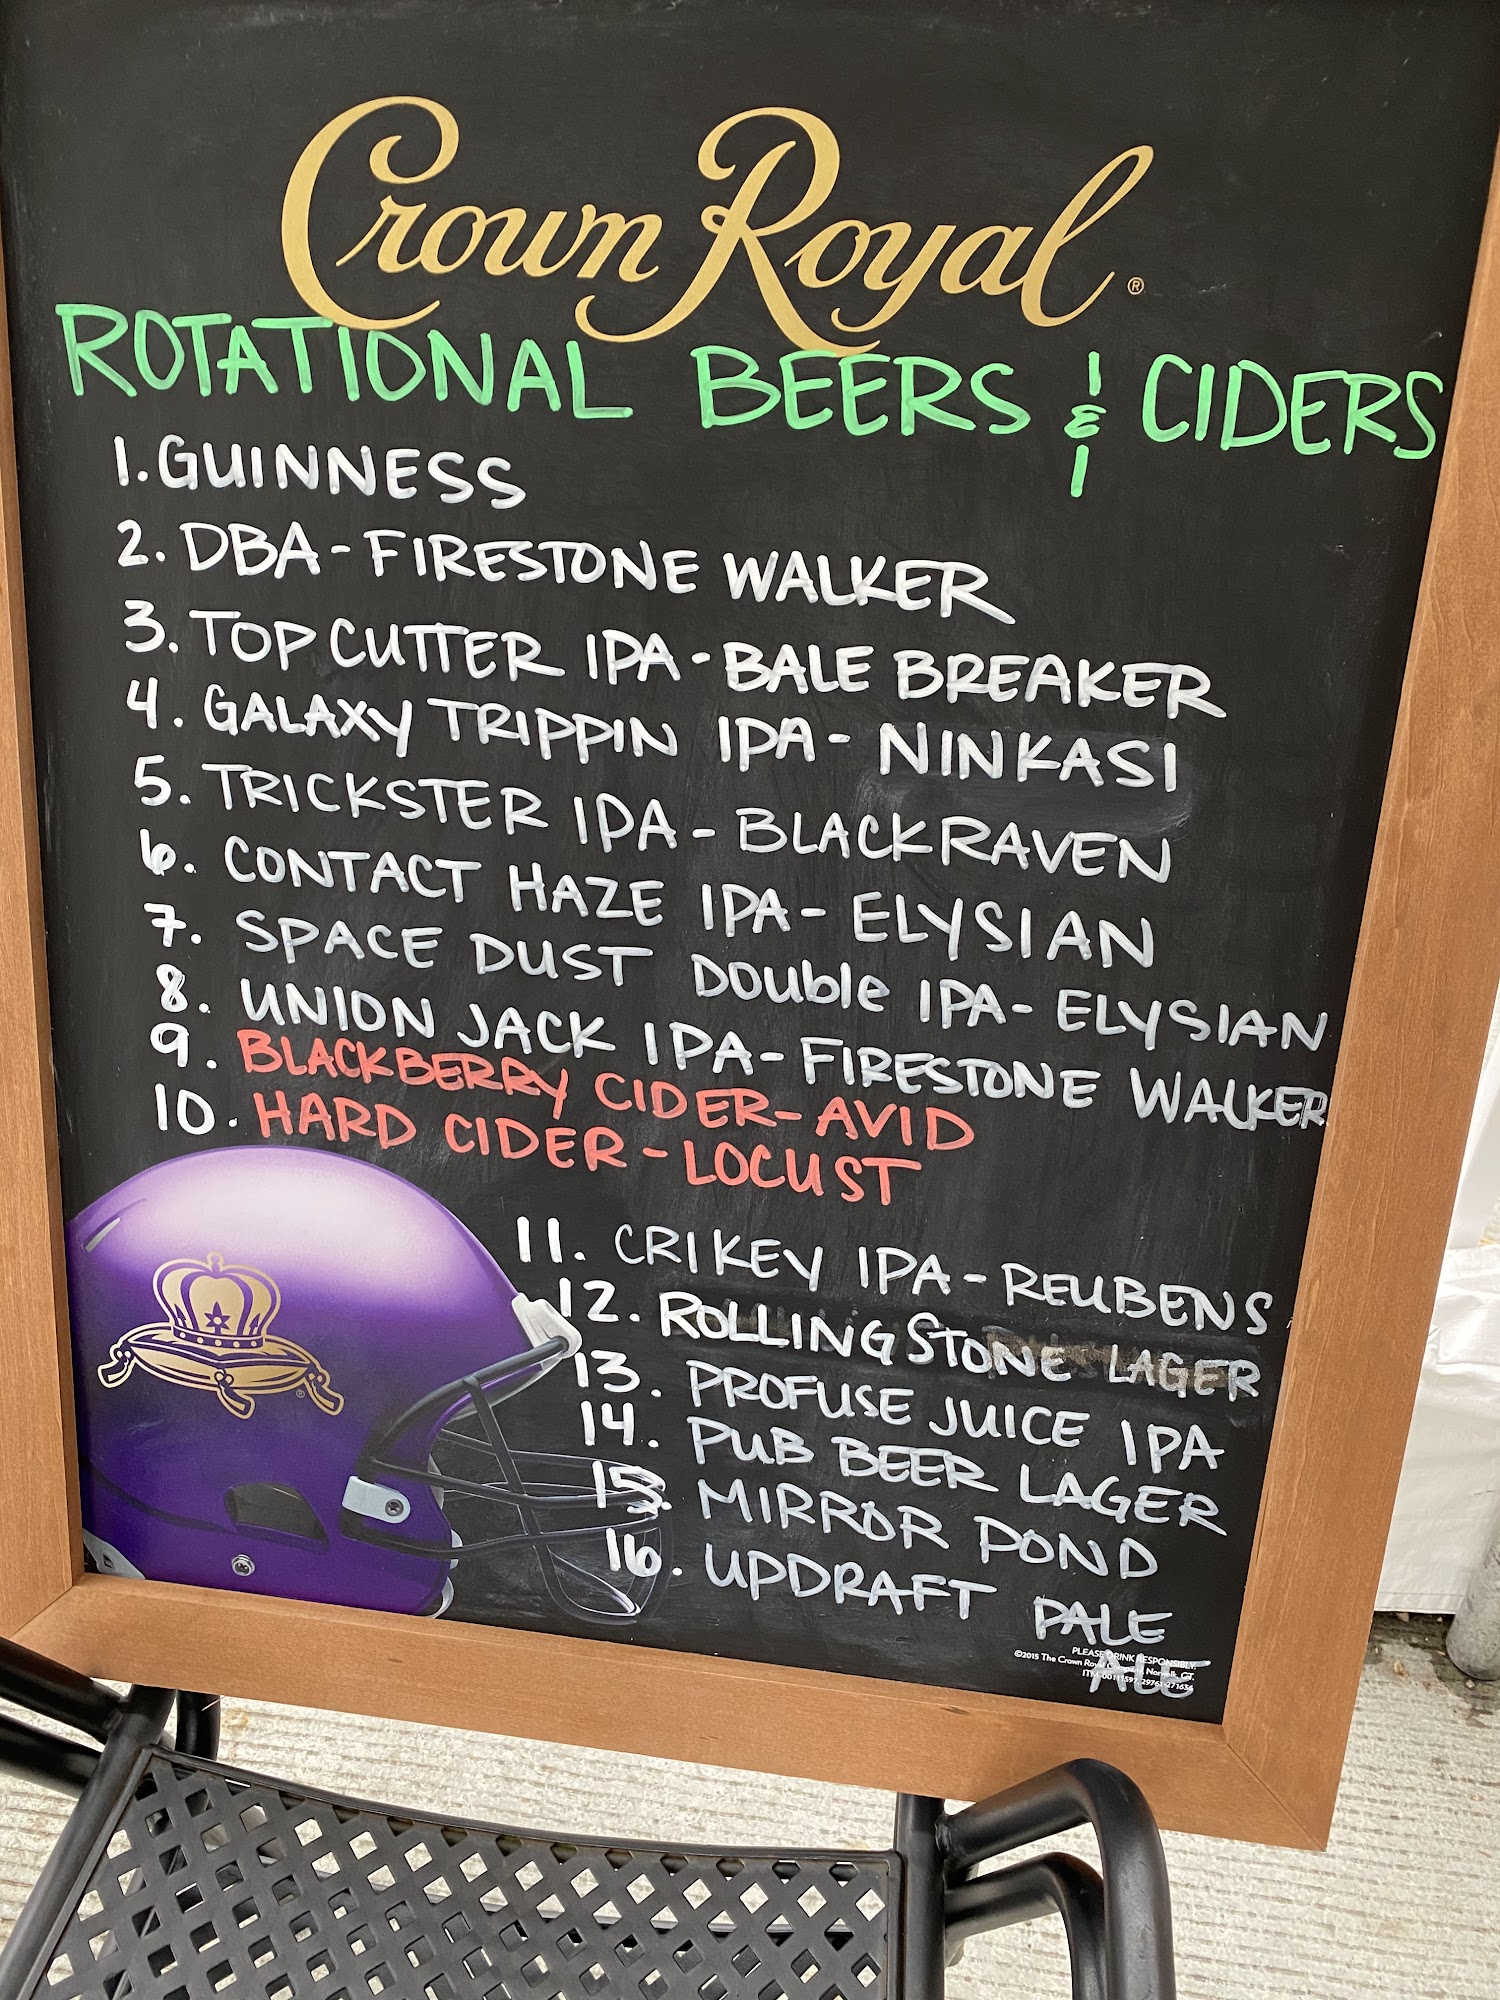 Crown Royal®
ROTATIONAL BEERS & CIDERS
1. GUINNESS
2. DBA - FIRESTONE WALKER
3. TOP CUTTER IPA - BALE BREAKER
4. GALAXY TRIPPIN IPA - NINKASI
5. TRICKSTER IPA - BLACKRAVEN
6. CONTACT HAZE IPA - ELYSIAN
7. SPACE DUST Double IPA - ELYSIAN
8. UNION JACK IPA - FIRESTONE WALKER
9. BLACKBERRY CIDER - AVID
10. HARD CIDER - LOCUST
11. CRIKEY IPA - REUBENS
12. ROLLING STONE LAGER
13. PROFUSE JUICE IPA
14. PUB BEER LAGER
15. MIRROR POND
16. UPDRAFT PALE
ALE
PLEASE DRINK RESPONSIBLY.
©2015 The Crown Royal Company, Norwalk, CT.